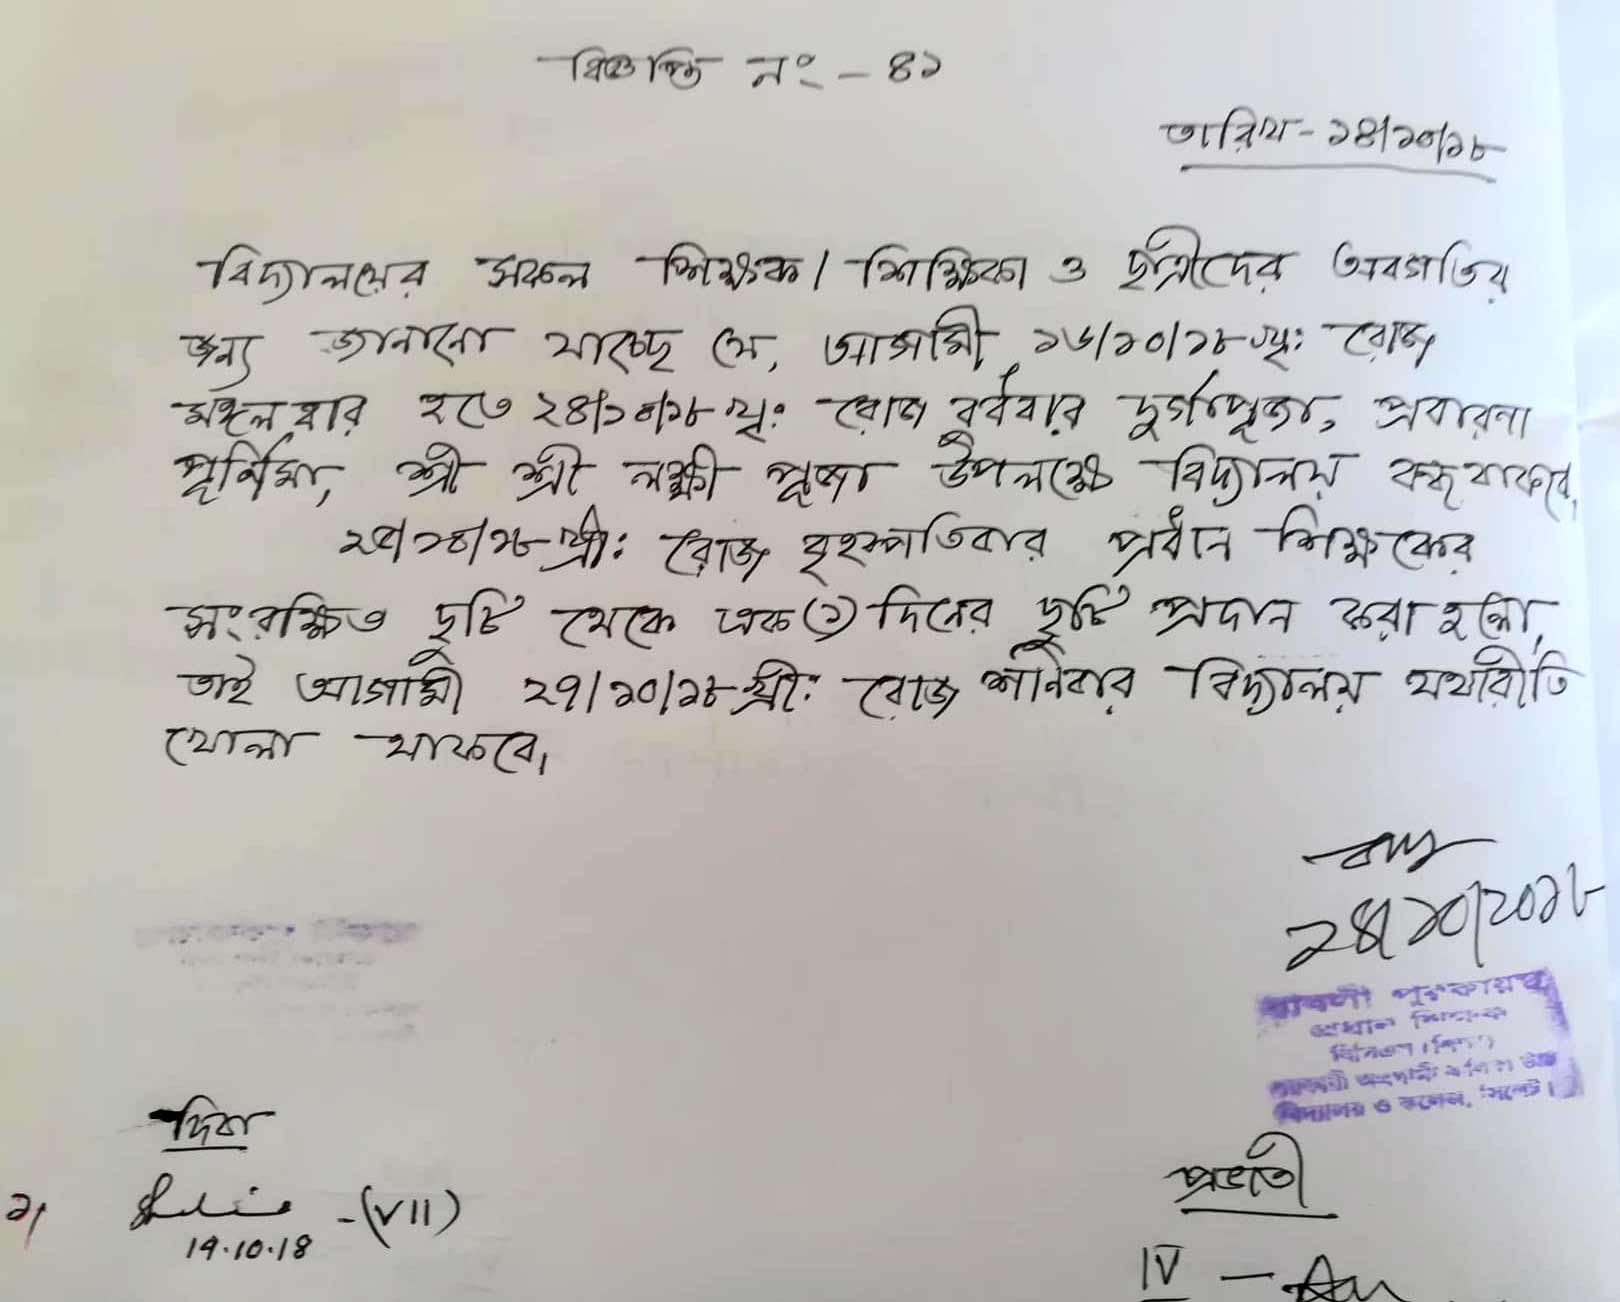 বিজ্ঞপ্তি নং - ৪১
তারিখ - ১৪/১০/১৮
বিদ্যালয়ের সকল শিক্ষক/শিক্ষিকা ও ছাত্রীদের অবগতির
জন্য জানানো যাচ্ছে যে, আগামী ১৬/১০/১৮ খৃ: রোজ
মঙ্গলবার হতে ২৪/১০/১৮ খৃ: রোজ বুধবার দুর্গাপূজা, প্রবারনা
পূর্ণিমা, শ্রী শ্রী লক্ষ্মী পূজা উপলক্ষে বিদ্যালয় বন্ধ থাকবে,
২৫/১০/১৮ খ্রী: রোজ বৃহস্পতিবার প্রধান শিক্ষকের
সংরক্ষিত ছুটি থেকে এক (১) দিনের ছুটি প্রদান করা হলো,
তাই আগামী ২৭/১০/১৮ খ্রী: রোজ শনিবার বিদ্যালয় যথারীতি
খোলা থাকবে।
১৪/১০/২০১৮
বাবলী পুরকায়স্থ
প্রধান শিক্ষক
বিদ্যালয় ও কলেজ, সিলেট।
দিবা
প্রভাতী
১/ - (VII)
14.10.18
IV -